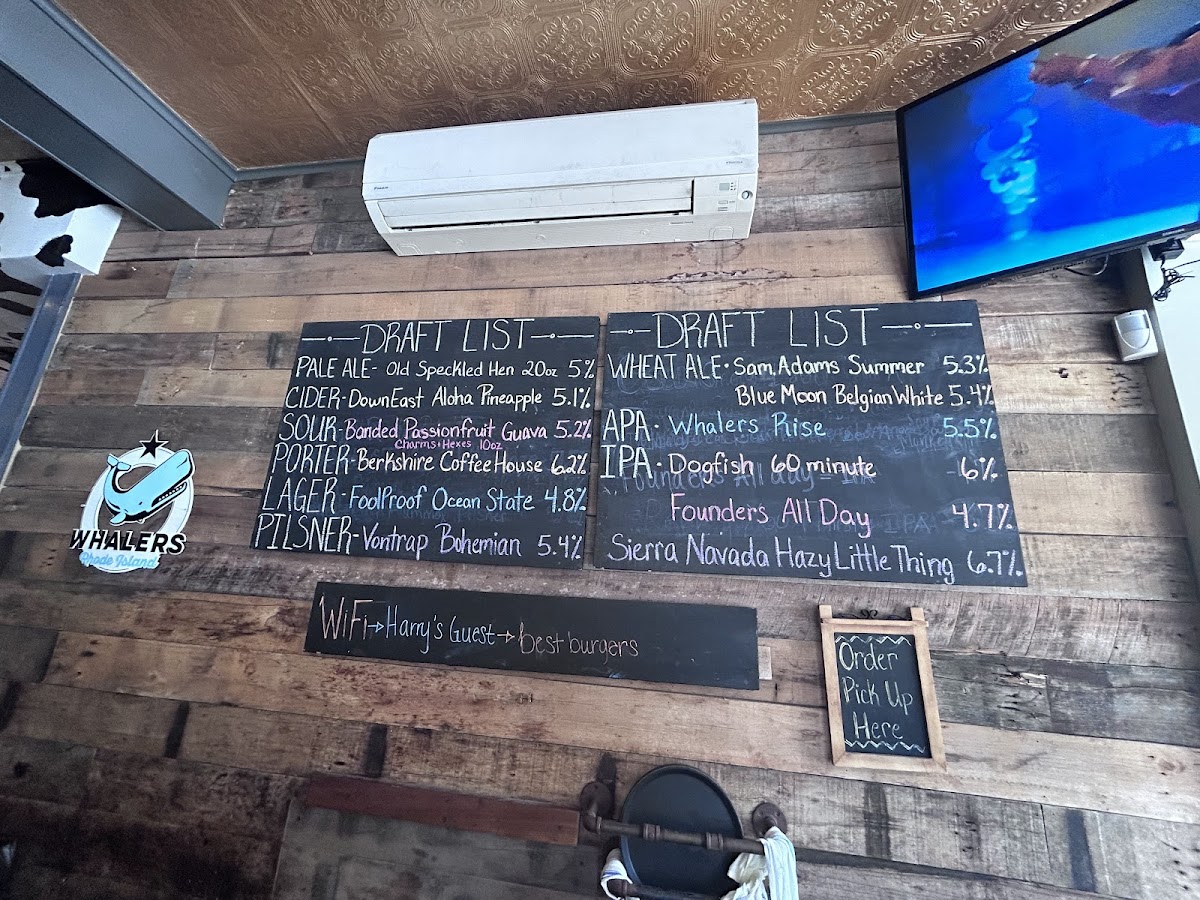 DRAFT LIST
PALE ALE- Old Speckled Hen 20oz 5%
CIDER-DownEast Aloha Pineapple 5.1%
SOUR-Banded Passionfruit Guava 5.2%
Charms+Hexes 10oz
PORTER-Berkshire Coffee House 6.2%
LAGER-FoolProof Ocean State 4.8%
PILSNER-Vontrap Bohemian 5.4%
DRAFT LIST
WHEAT ALE·Sam Adams Summer 5.3%
Blue Moon Belgian White 5.4%
APA· Whalers Rise 5.5%
IPA·Dogfish 60 minute 6%
Founders All Day 4.7%
Sierra Navada Hazy Little Thing 6.7%
WHALERS
Rhode Island
WiFi→Harry's Guest→best burgers
Order
Pick Up
Here